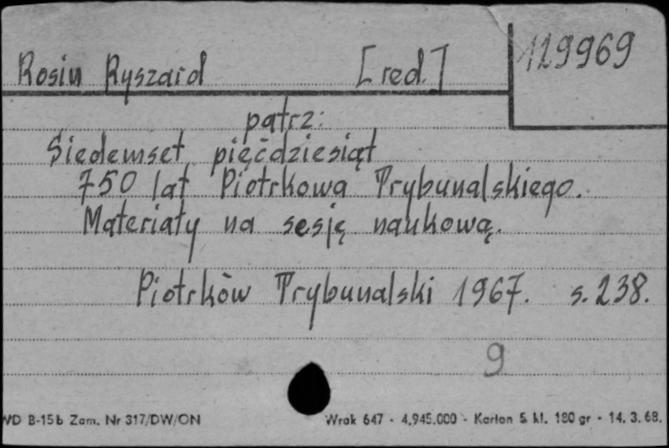 Rosin Ryszard [red.] 129969
patrz:
Siedemset pięćdziesiąt
750 lat Piotrkowa Trybunalskiego.
Materiały na sesję naukową.
Piotrków Trybunalski 1967. s. 238.
9
WD B-15b Zam. Nr 317/DW/ON Wrak 647 - 4.945.000 - Karton 5 kl. 180 gr - 14. 3. 68.